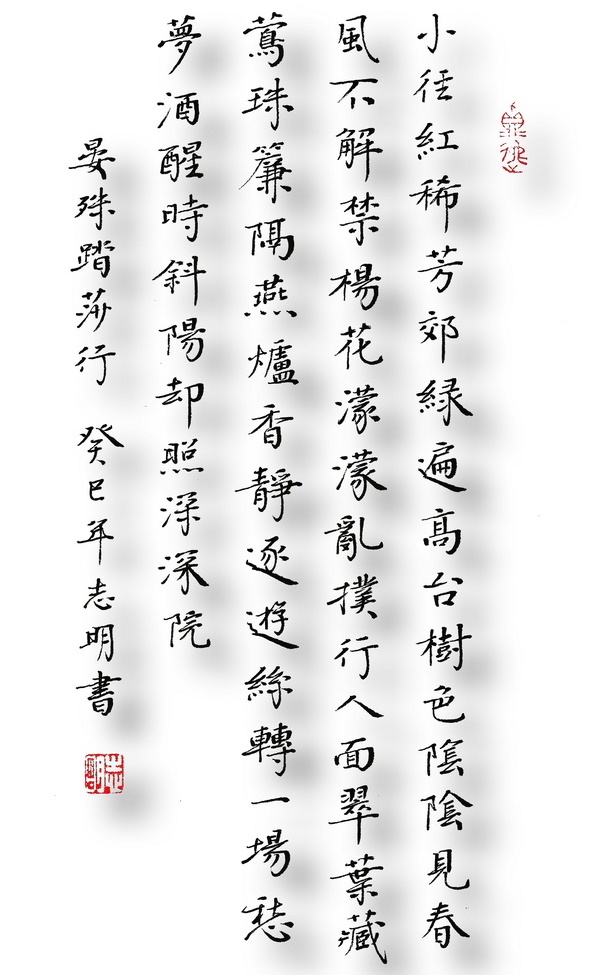 小徑紅稀芳郊緑遍高台樹色陰陰見春
風不解禁楊花濛濛亂撲行人面翠葉藏
鶯珠簾隔燕爐香靜逐遊絲轉一場愁
夢酒醒時斜陽却照深深院
晏殊踏莎行 癸巳年志明書